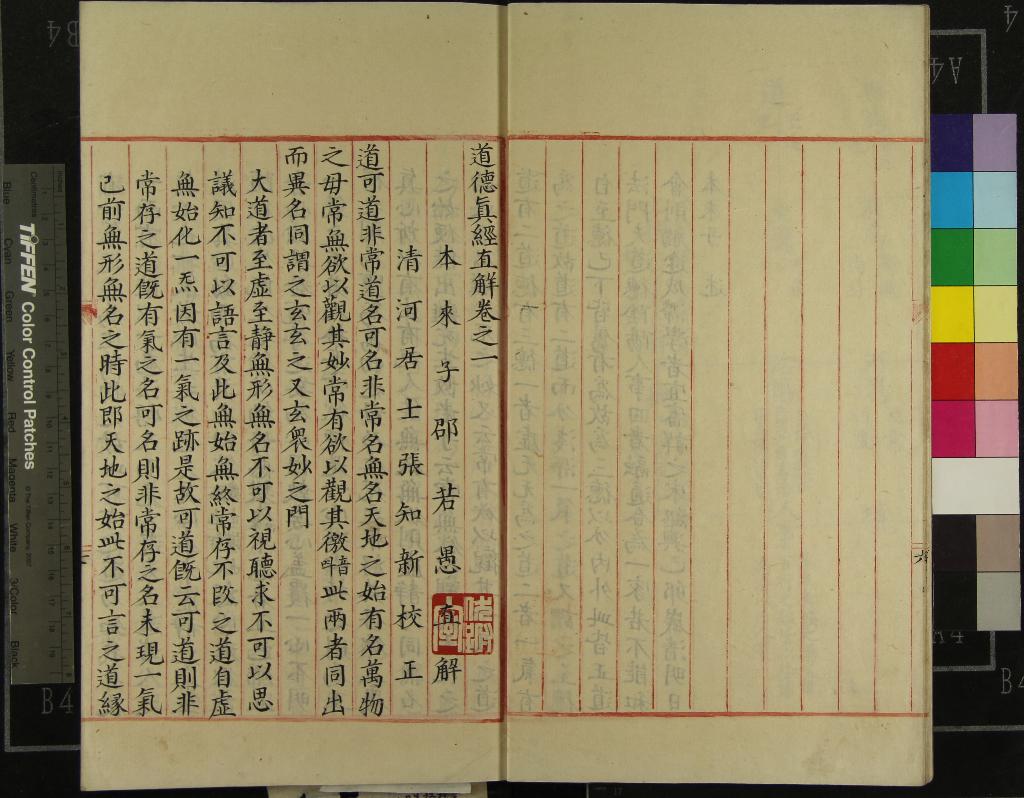 道德眞經直解卷之一
本來子邵若愚直解
清河居士張知新校正
道可道非常道名可名非常名無名天地之始有名萬物
之母常無欲以觀其妙常有欲以觀其徼此兩者同出
而異名同謂之玄玄之又玄衆妙之門
大道者至虛至靜無形無名不可以視聽求不可以思
議知不可以語言及此無始無終常存不改之道自虛
無始化一炁因有一氣之跡是故可道旣云可道則非
常存之道旣有氣之名可名則非常存之名未現一氣
已前無形無名之時此卽天地之始此不可言之道緣
六
TIFFEN Color Control Patches
© The Tiffen Company, 2007
Centimetres
Inches
Blue
Cyan
Green
Yellow
Red
Magenta
White
3/Color
Black
B4
A4
B4